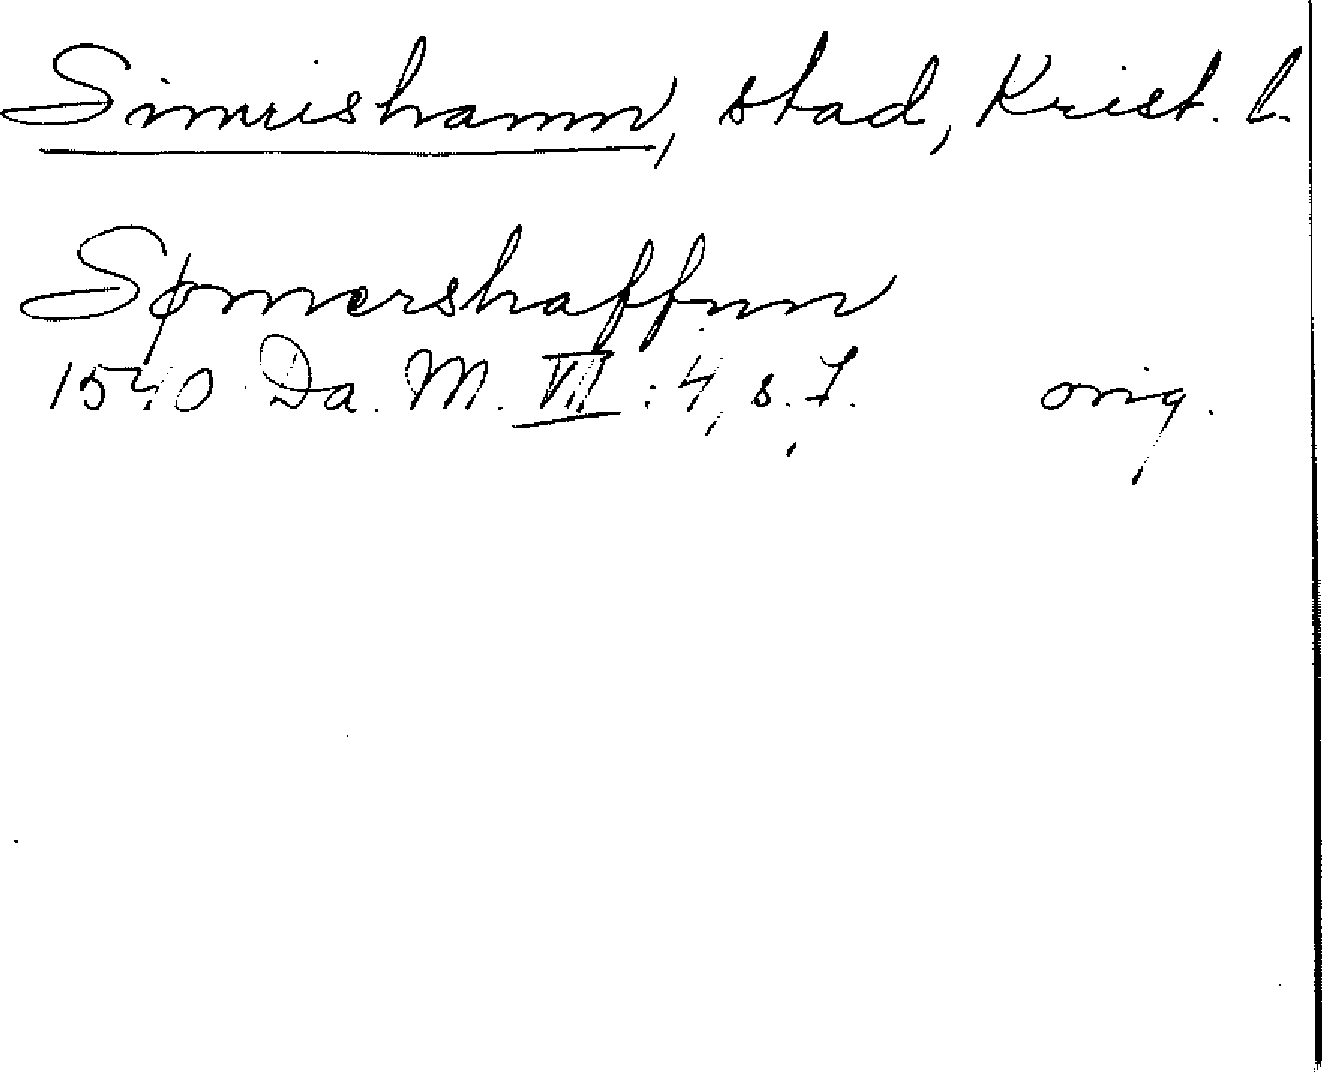 Simrishamn, stad, Krist. l.
Sømershaffnn
1540 Da. M. VII : 4, s. 7. orig.